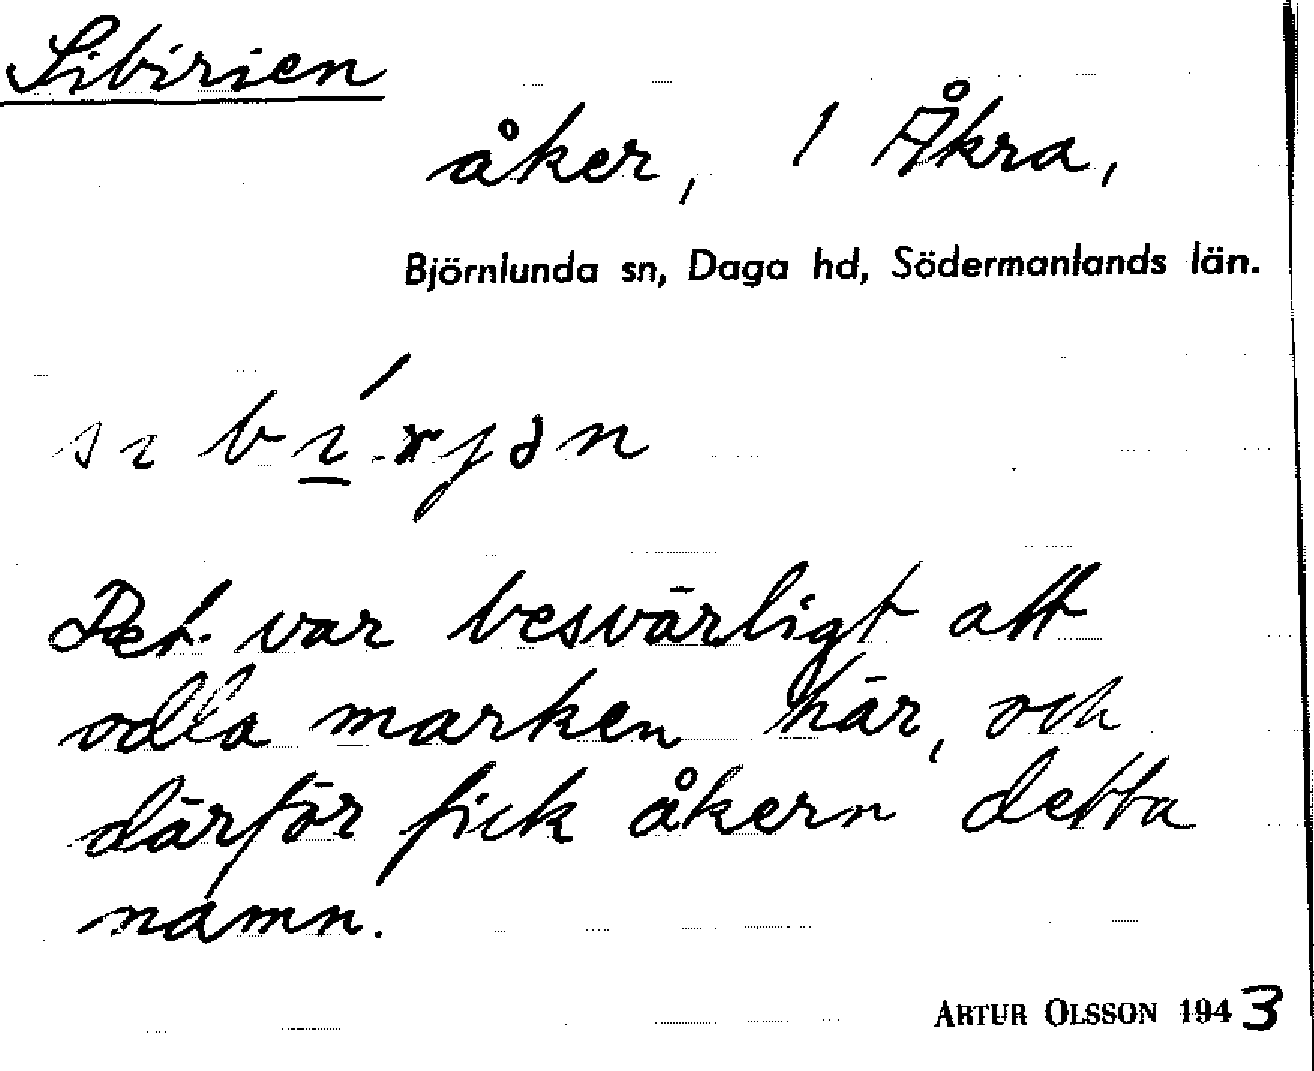 Sibirien
åker, 1 Åkra,
Björnlunda sn, Daga hd, Södermanlands län.
sɩbɩ́rjən
Det var besvärligt att
odla marken här, och
därför fick åkern detta
namn.
ARTUR OLSSON 1943